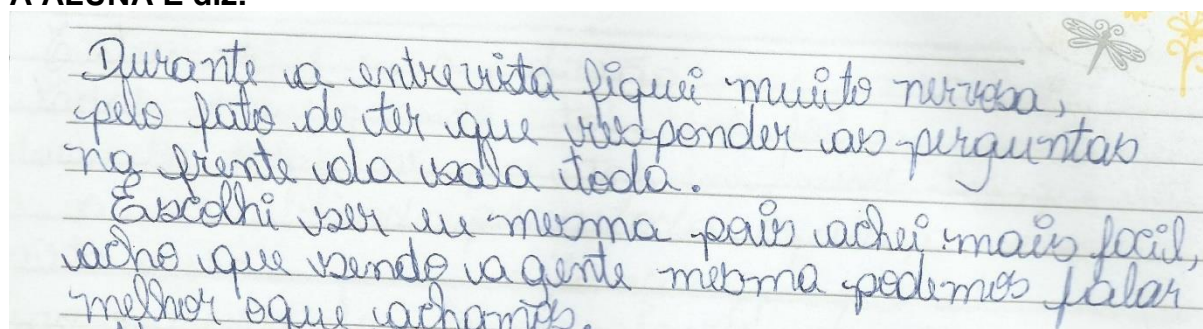 A ALUNA E diz:
Durante a entrevista fiquei muito nervosa,
pelo fato de ter que responder as perguntas
na frente da sala toda.
Escolhi ser eu mesma pois achei mais facil,
acho que sendo a gente mesma podemos falar
melhor oque achamos.